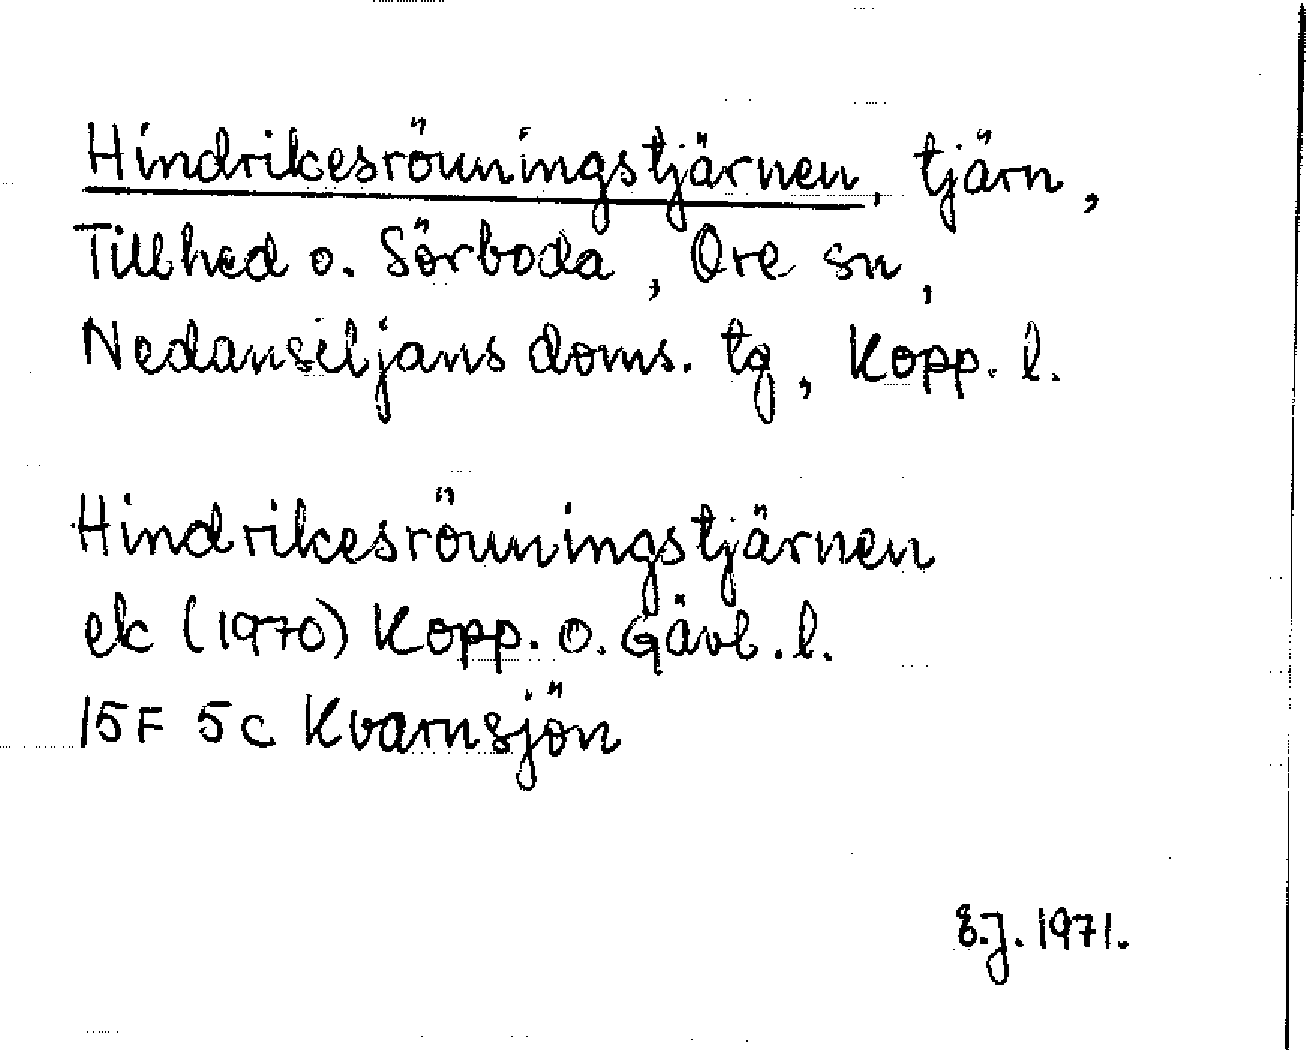 Hindrikesrönningstjärnen, tjärn,
Tillhed o. Sörboda, Ore sn,
Nedansiljans doms. tg, Kopp. l.
Hindrikesrönningstjärnen
ek (1970) Kopp. o. Gävl. l.
15F 5c Kvarnsjön
E.J. 1971.